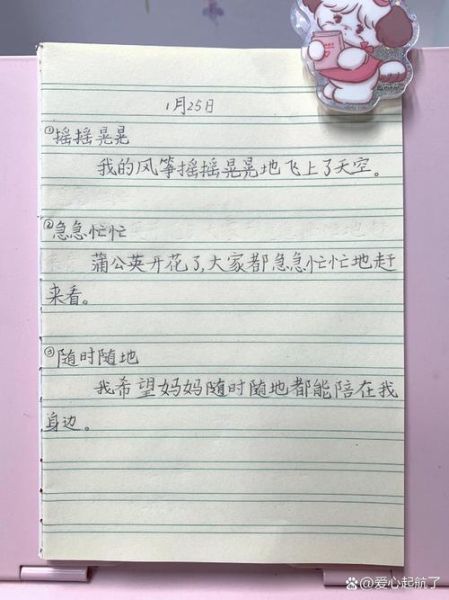 1月25日
①摇摇晃晃
我的风筝摇摇晃晃地飞上了天空。
②急急忙忙
蒲公英开花了,大家都急急忙忙地赶
来看。
③随时随地
我希望妈妈随时随地都能陪在我
身边。
@爱心起航了